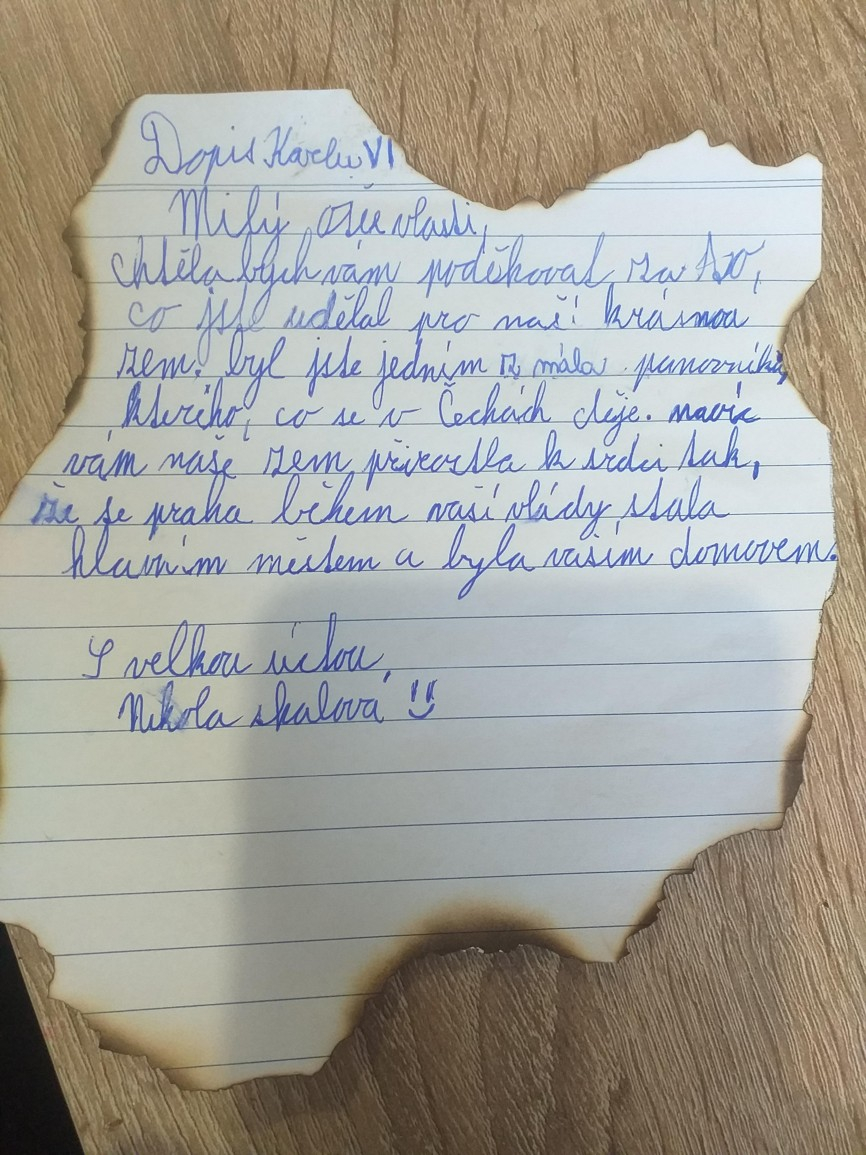 Dopis Karlu VI
Milý otče vlasti,
chtěla bych vám poděkovat za to,
co jste udělal pro naší krásnou
zem. byl jste jedním z mála panovníků,
kterého, co se v Čechách děje. navíc
vám naše zem přirostla k srdci tak,
že se praha během vaší vlády stala
hlavním městem a byla vaším domovem.
S velkou úctou,
Nikola skalová